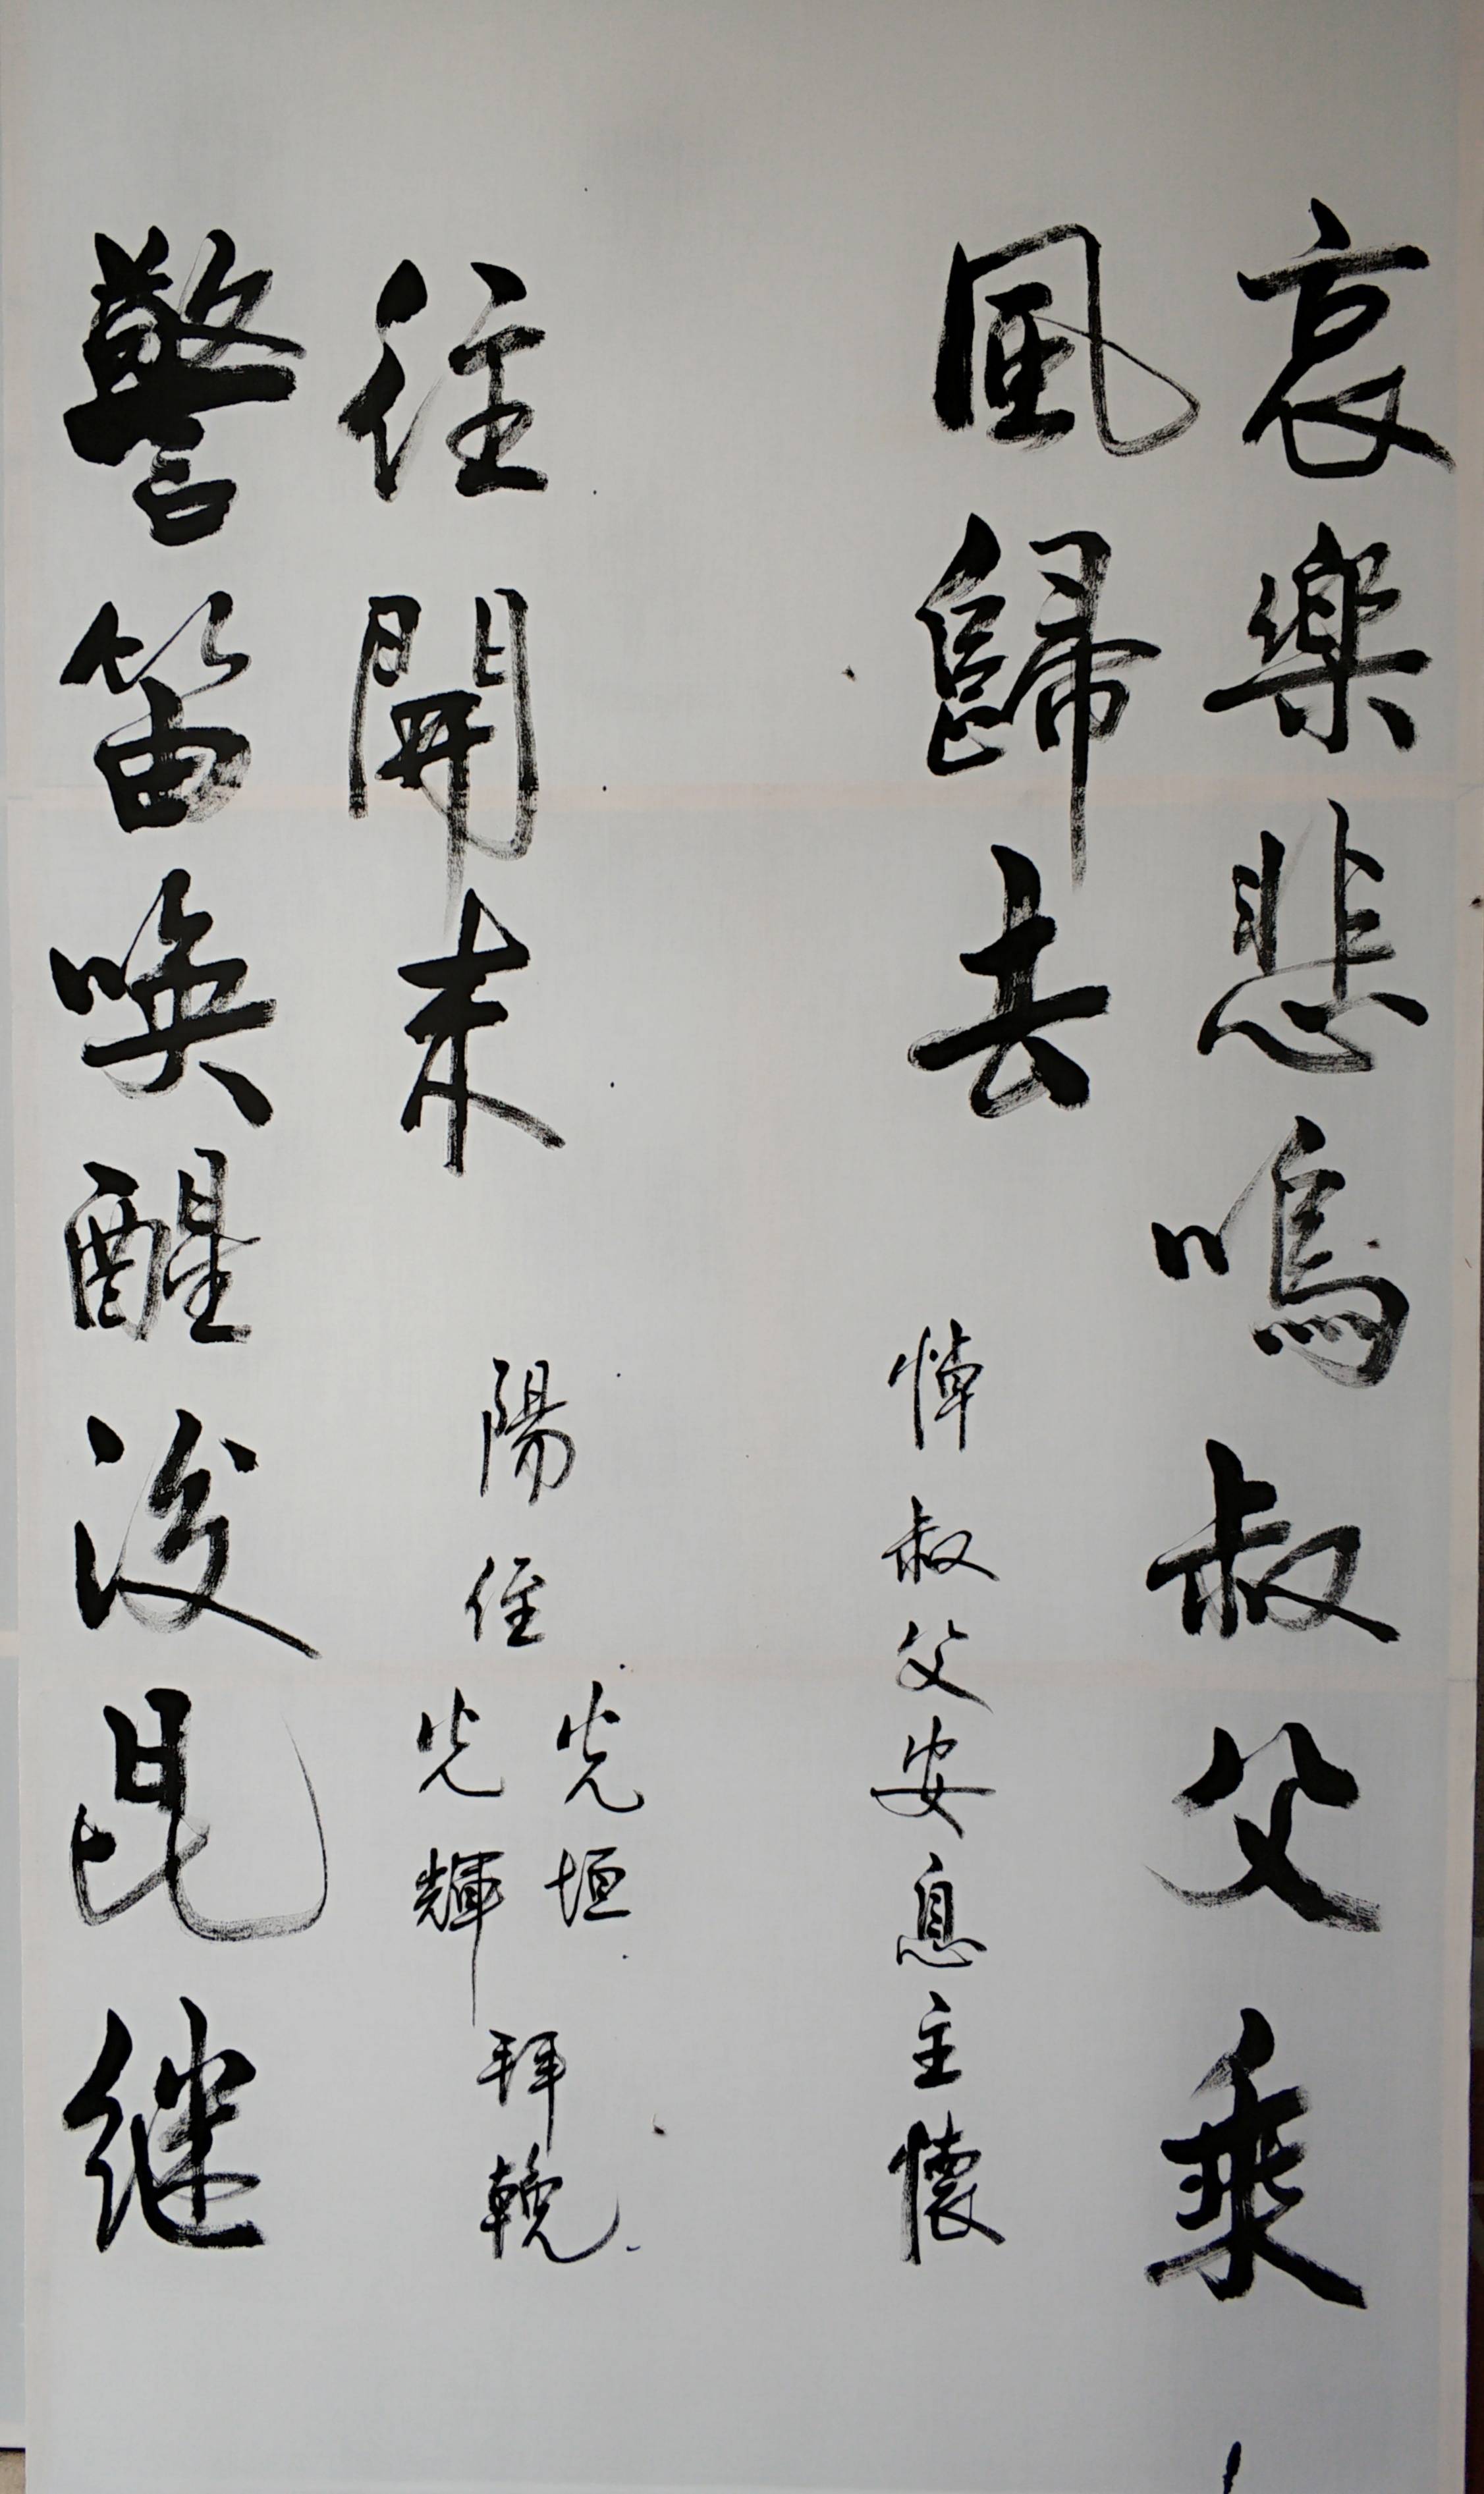 哀樂悲鳴叔父乘
風歸去
悼叔父安息主懷
警笛喚醒後昆继
往開来
陽侄
光垣
光輝
拜輓